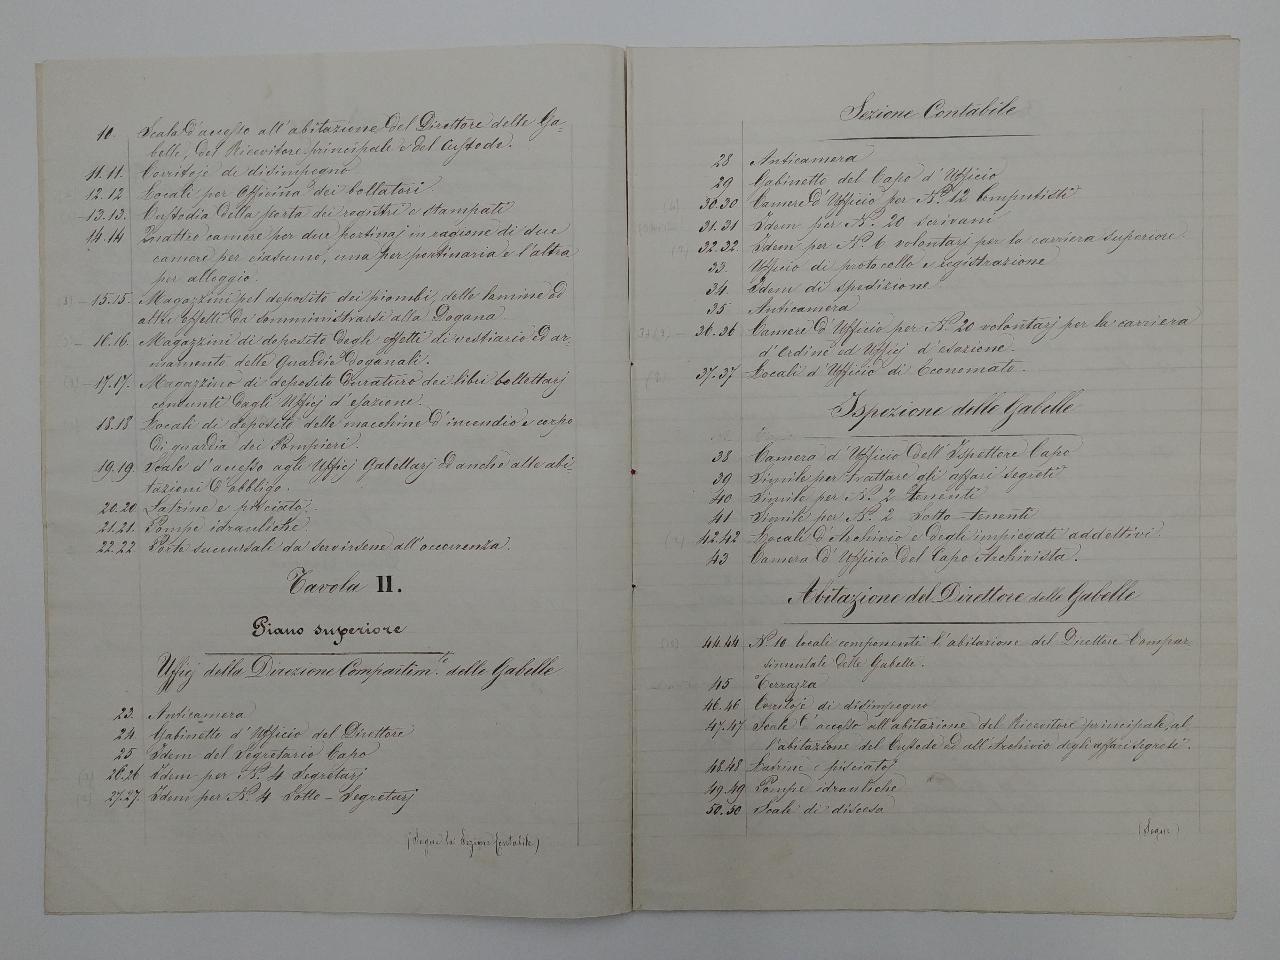 10. Scala d'accesso all'abitazione del Direttore delle Ga-
belle, del Ricevitore principale e del Custode.
11.11. Corritoje di disimpegno
12.12 Locali per Officina dei bollatori
13.13. Custodia della porta dei registri e stampati
14.14 Quattro camere per due portinaj in ragione di due
camere per ciascuno, una per portinaria e l'altra
per alloggio.
15.15. Magazzini pel deposito dei piombi, delle lamine ed
altri effetti da somministrarsi alla Dogana.
16.16. Magazzini di deposito degli effetti di vestiario ed ar-
mamento delle Guardie Doganali.
17.17. Magazzino di deposito duraturo dei libri bollettarj
consunti dagli Ufficj d'esazione.
18.18 Locali di deposito delle macchine d'incendio e corpo
di guardia dei Pompieri.
19.19 Scale d'accesso agli Ufficj Gabellarj ed anche alle abi-
tazioni d'obbligo.
20.20 Latrine e pisciatoj
21.21. Pompe idrauliche
22.22 Porte succursali da servirsene all'occorrenza.
Tavola II.
Piano superiore
Ufficj della Direzione Compartim.le delle Gabelle
23. Anticamera
24. Gabinetto d'Ufficio del Direttore
25 Idem del Segretario Capo
26.26 Idem per N.º 4 Segretarj
27.27. Idem per N.º 4 Sotto-Segretarj
(Segue la Sezione Contabile)
Sezione Contabile
28 Anticamera
29 Gabinetto del Capo d'Ufficio
30.30 Camere d'Ufficio per N.º 12 Computisti
31.31 Idem per N.º 20 Scrivani
32.32. Idem per N.º 6 volontarj per la carriera superiore.
33. Ufficio di protocollo e registrazione
34. Idem di spedizione
35 Anticamera
36.36 Camere d'Ufficio per N.º 20 volontarj per la carriera
d'Ordine ed Ufficj d'esazione.
37.37 Locali d'Ufficio di Economato.
Ispezione delle Gabelle
38 Camera d'Ufficio dell'Ispettore Capo
39 Simile per trattare gli affari segreti
40 Simile per N.º 2 tenenti
41 Simile per N.º 2 Sotto-tenenti
42.42 Locale d'Archivio e degli impiegati addettivi
43 Camera d'Ufficio del Capo Archivista.
Abitazione del Direttore delle Gabelle
44.44 N.º 10 locali componenti l'abitazione del Direttore Compar-
timentale delle Gabelle.
45 Terrazza
46.46 Corritoje di disimpegno
47.47 Scale d'accesso all'abitazione del Ricevitore principale, al-
l'abitazione del Custode ed all'Archivio degli affari segreti.
48.48 Latrine e pisciatoj
49.49 Pompe idrauliche
50.50 Scale di discesa
(Segue)